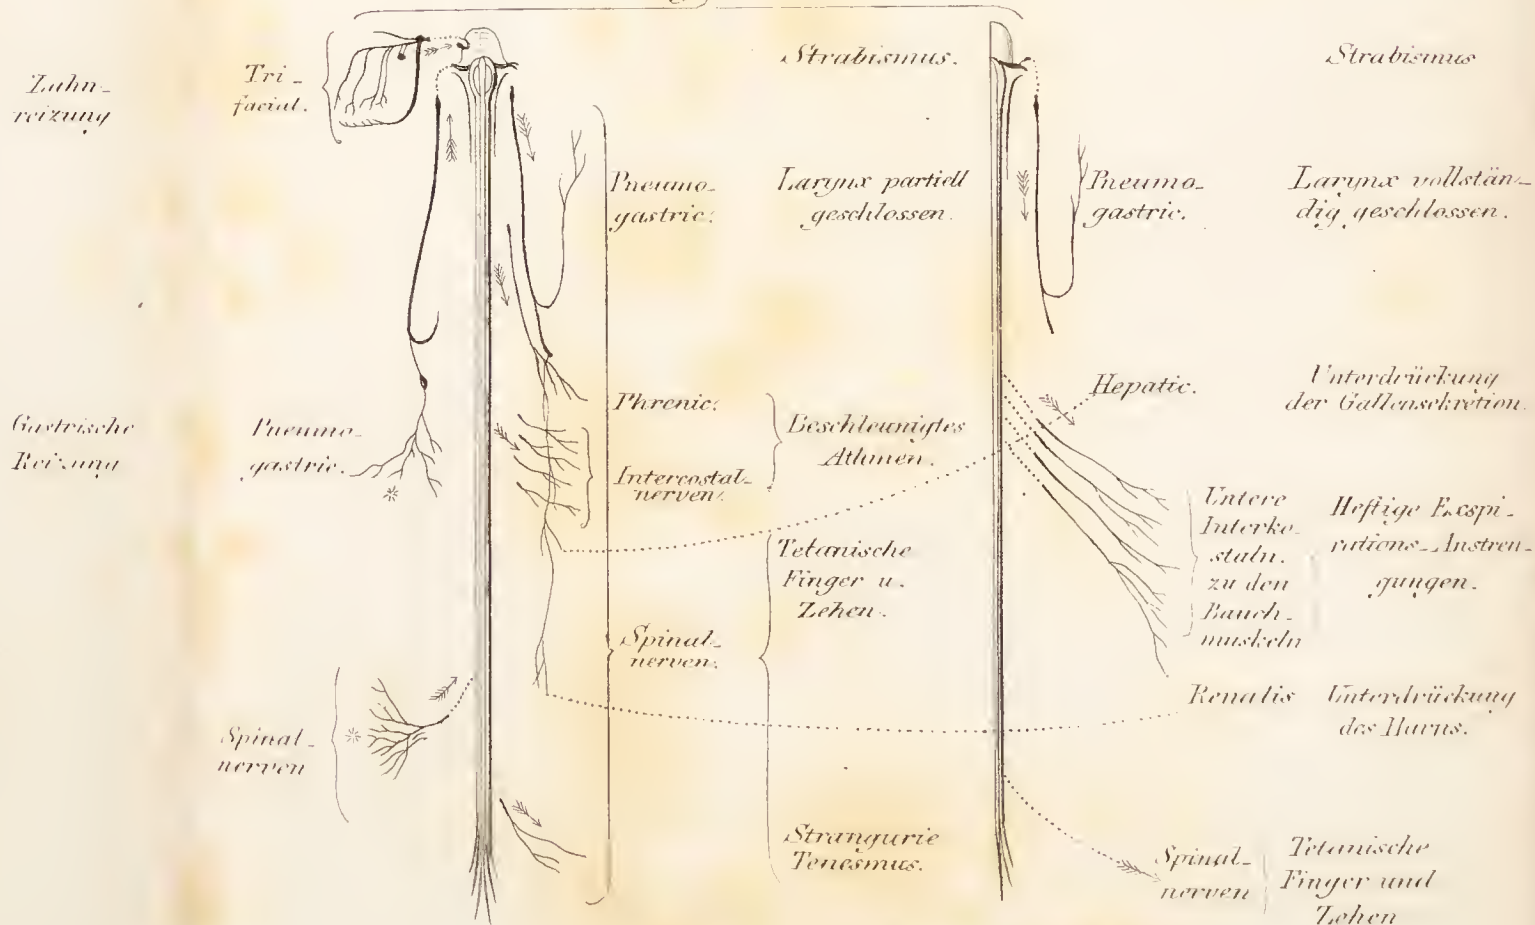 Zahn-
reizung
Tri-
facial.
Strabismus.
Strabismus
Pneumo-
gastric.
Larynx partiell
geschlossen.
Pneumo-
gastric.
Larynx vollstän-
dig geschlossen.
Gastrische
Reizung
Pneumo-
gastric.
Phrenic.
Intercostal-
nerven.
Beschleunigtes
Athmen.
Hepatic.
Unterdrückung
der Gallensekretion.
Untere
Interko-
staln.
zu den
Bauch-
muskeln
Heftige Exspi-
rations-Anstren-
gungen.
Tetanische
Finger u.
Zehen.
Spinal-
nerven.
Renalis
Unterdrückung
des Harns.
Spinal-
nerven
Strangurie
Tenesmus.
Spinal-
nerven
Tetanische
Finger und
Zehen